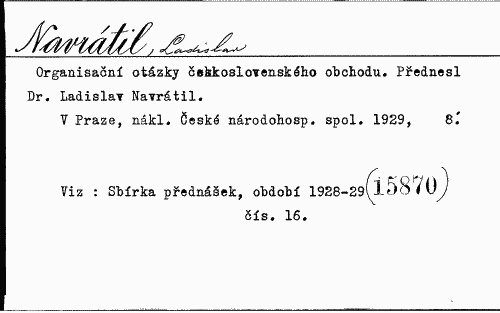 Navrátil, Ladislav
Organisační otázky československého obchodu. Přednesl
Dr. Ladislav Navrátil.
V Praze, nákl. České národohosp. spol. 1929, 8°.
Viz : Sbírka přednášek, období 1928-29 (15870)
čís. 16.